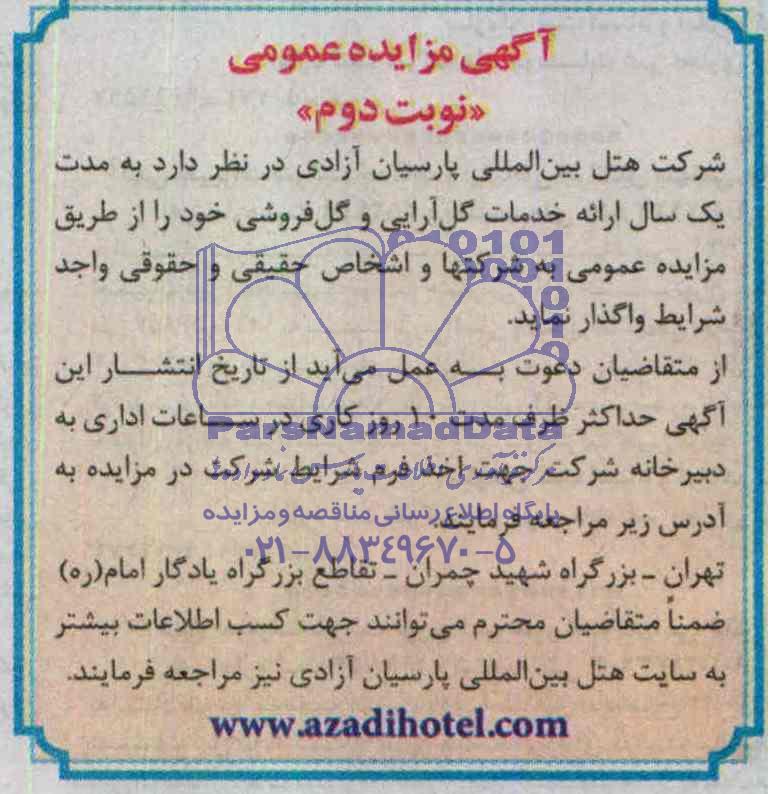 آگهی مزایده عمومی
«نوبت دوم»
شرکت هتل بین‌المللی پارسیان آزادی در نظر دارد به مدت
یک سال ارائه خدمات گل‌آرایی و گل‌فروشی خود را از طریق
مزایده عمومی به شرکتها و اشخاص حقیقی و حقوقی واجد
شرایط واگذار نماید.
از متقاضیان دعوت به عمل می‌آید از تاریخ انتشار این
آگهی حداکثر ظرف مدت ۱۰ روز کاری در ساعات اداری به
دبیرخانه شرکت جهت اخذ فرم شرایط شرکت در مزایده به
آدرس زیر مراجعه فرمایند.
تهران ـ بزرگراه شهید چمران ـ تقاطع بزرگراه یادگار امام(ره)
ضمناً متقاضیان محترم می‌توانند جهت کسب اطلاعات بیشتر
به سایت هتل بین‌المللی پارسیان آزادی نیز مراجعه فرمایند.
www.azadihotel.com
ParsNamadData
پایگاه اطلاع رسانی مناقصه و مزایده
۰۲۱-۸۸۳۴۹۶۷۰-۵